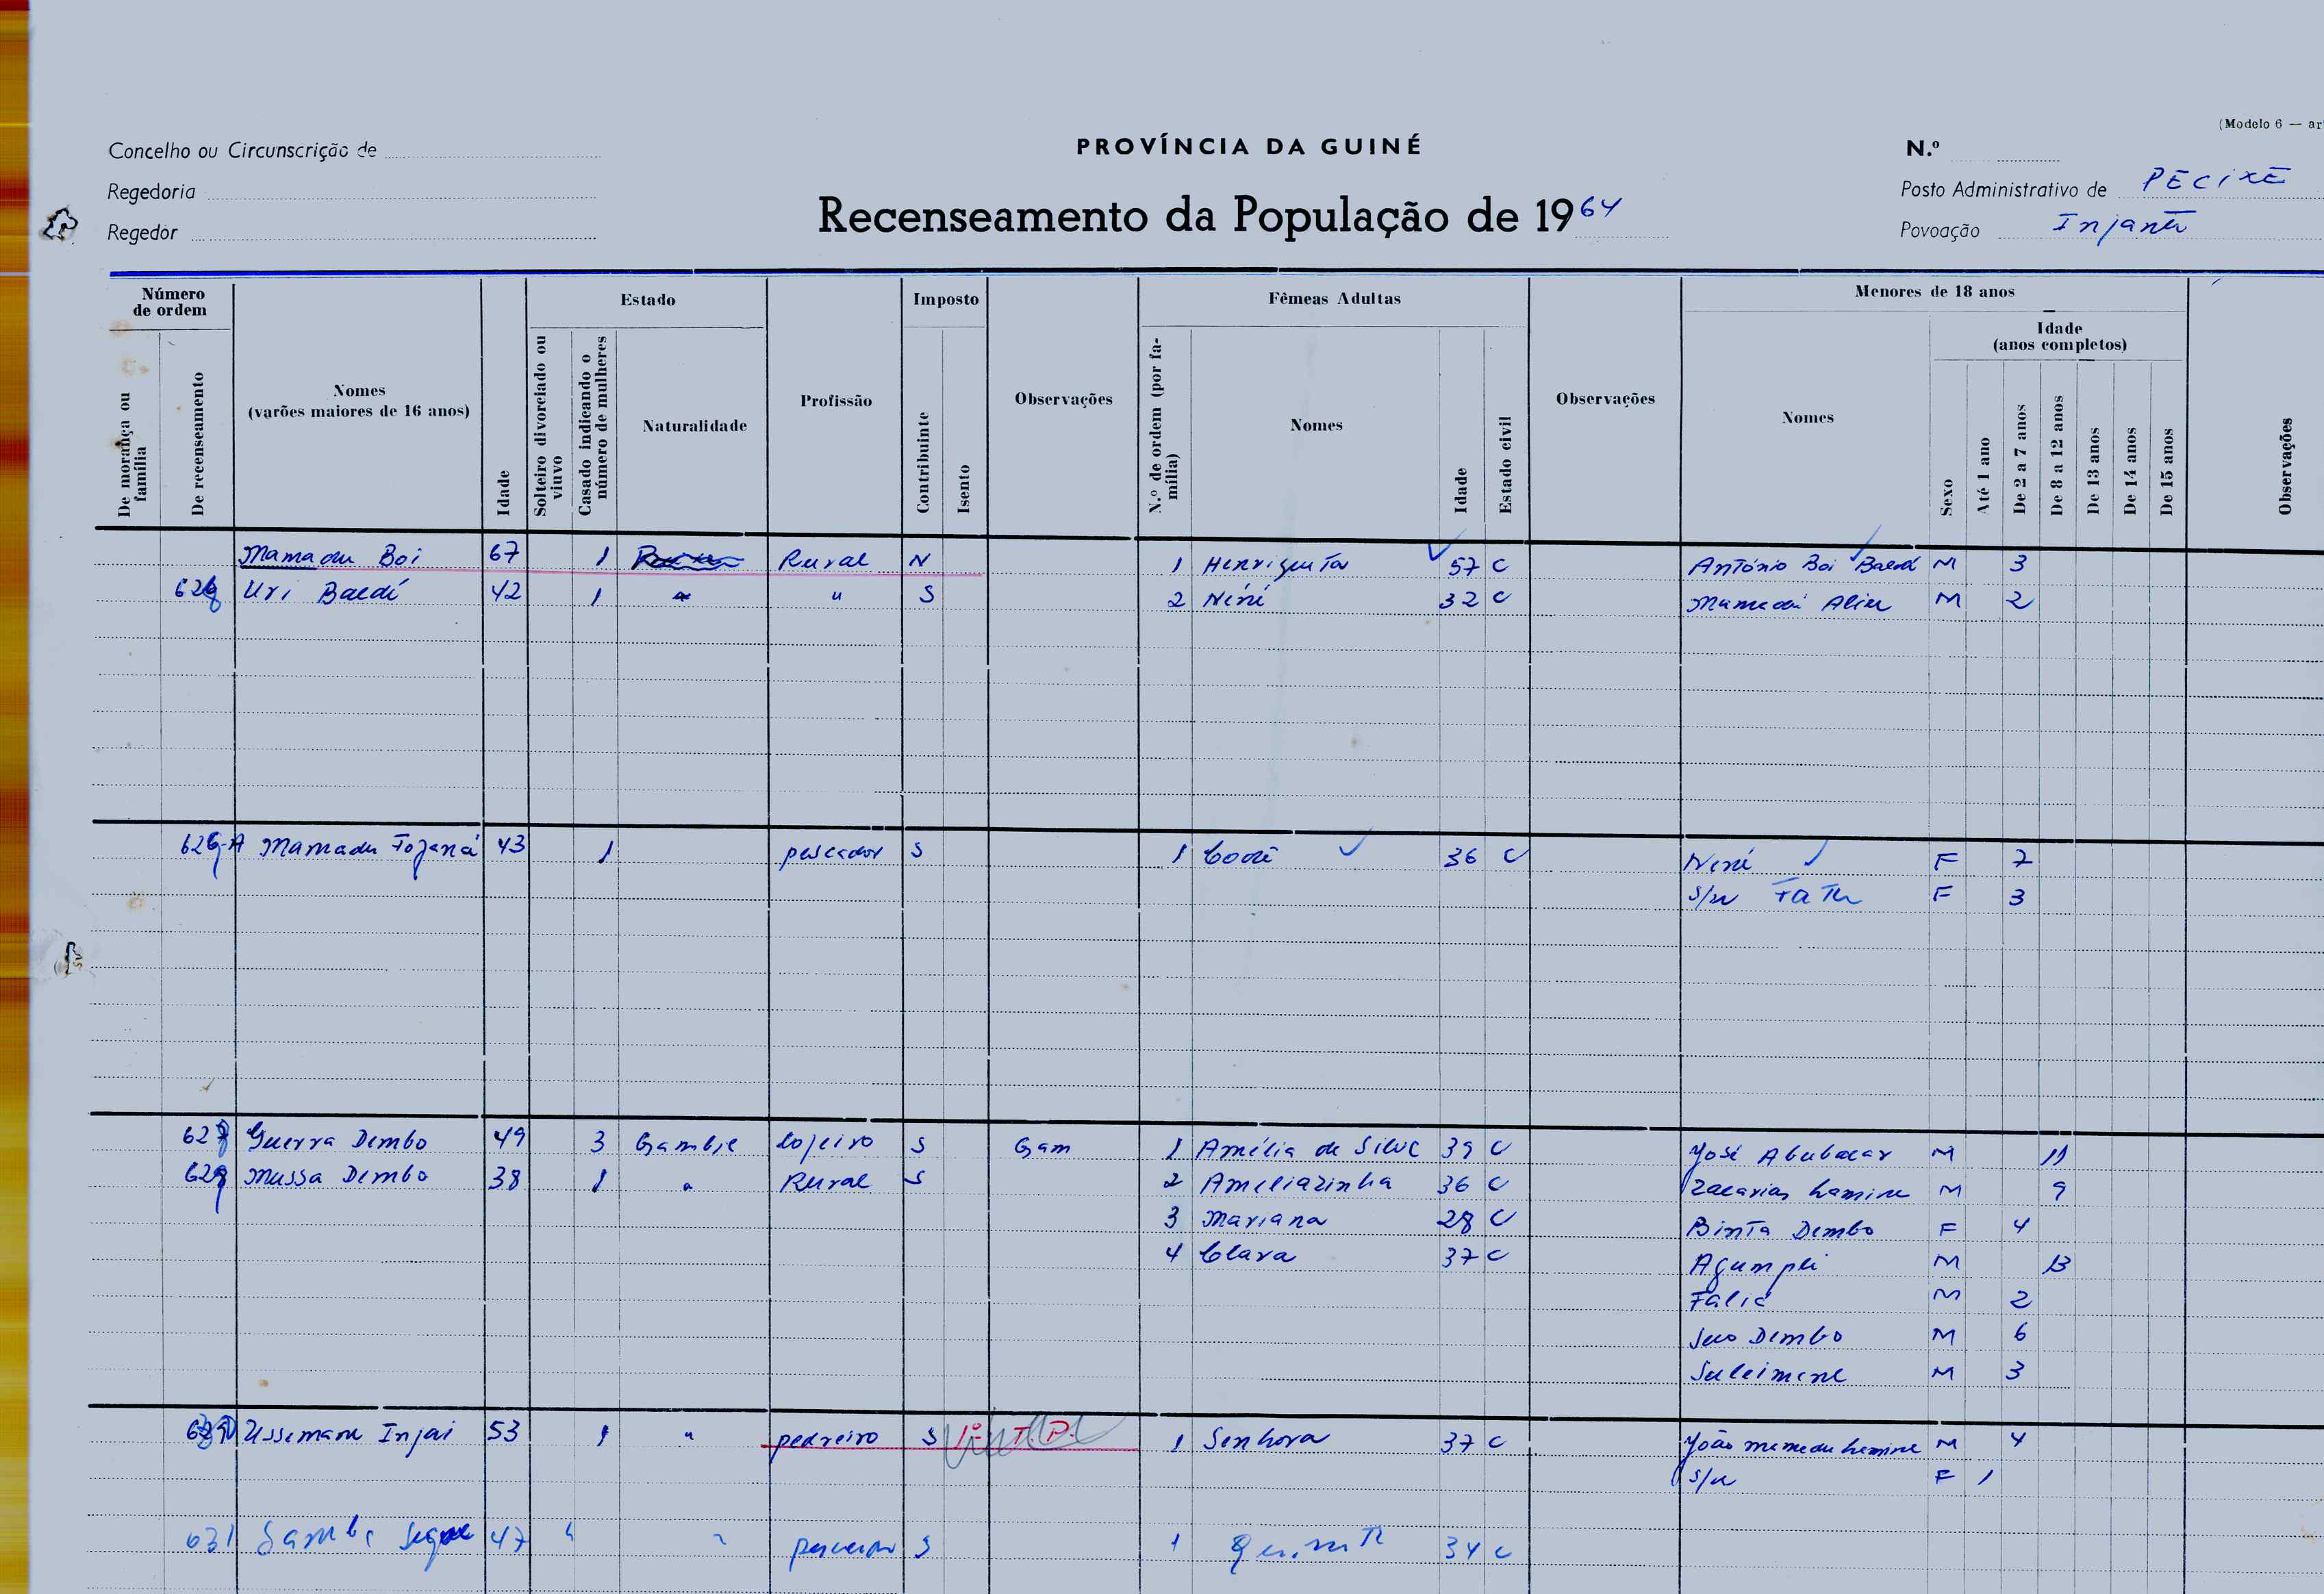 (Modelo 6 — ar
Concelho ou Circunscrição de
PROVÍNCIA DA GUINÉ
N.º
Regedoria
Posto Administrativo de PECIXE
Recenseamento da População de 1964
Regedor
Povoação Injante
Número de ordem
De morança ou família
De recenseamento
Nomes (varões maiores de 16 anos)
Idade
Estado
Solteiro divorciado ou viuvo
Casado indicando o número de mulheres
Naturalidade
Profissão
Imposto
Contribuinte
Isento
Observações
Fêmeas Adultas
N.º de ordem (por família)
Nomes
Idade
Estado civil
Observações
Menores de 18 anos
Nomes
Sexo
Idade (anos completos)
Até 1 ano
De 2 a 7 anos
De 8 a 12 anos
De 13 anos
De 14 anos
De 15 anos
Observações
Mamadu Boi 67 1 Rural N 1 Henriqueta 57 C António Boi Baldé M 3
Uri Baldí 42 1 " " S 2 Néné 32 C Mamadú M 2
Mamadu 43 1 pescador S 1 36 C Nené F 7
s/n Fatu F 3
Guerra Dembo 49 3 Gambie lojeiro S Gam 1 Amélia de Silva 39 C José Abubacar M 11
Mussa Dembo 38 1 " Rural S 2 Ameliazinha 36 C Zacarias Lamine M 9
3 Mariana 28 C Binta Dembo F 4
4 Clara 37 C M 13
M 2
Dembo M 6
Suleimene M 3
Ussemane Injai 53 1 " pedreiro S 1º T. P. 1 Senhora 37 C João Mamadu Lamine M 4
s/n F 1
631 47 " " pescador S 1 34 C